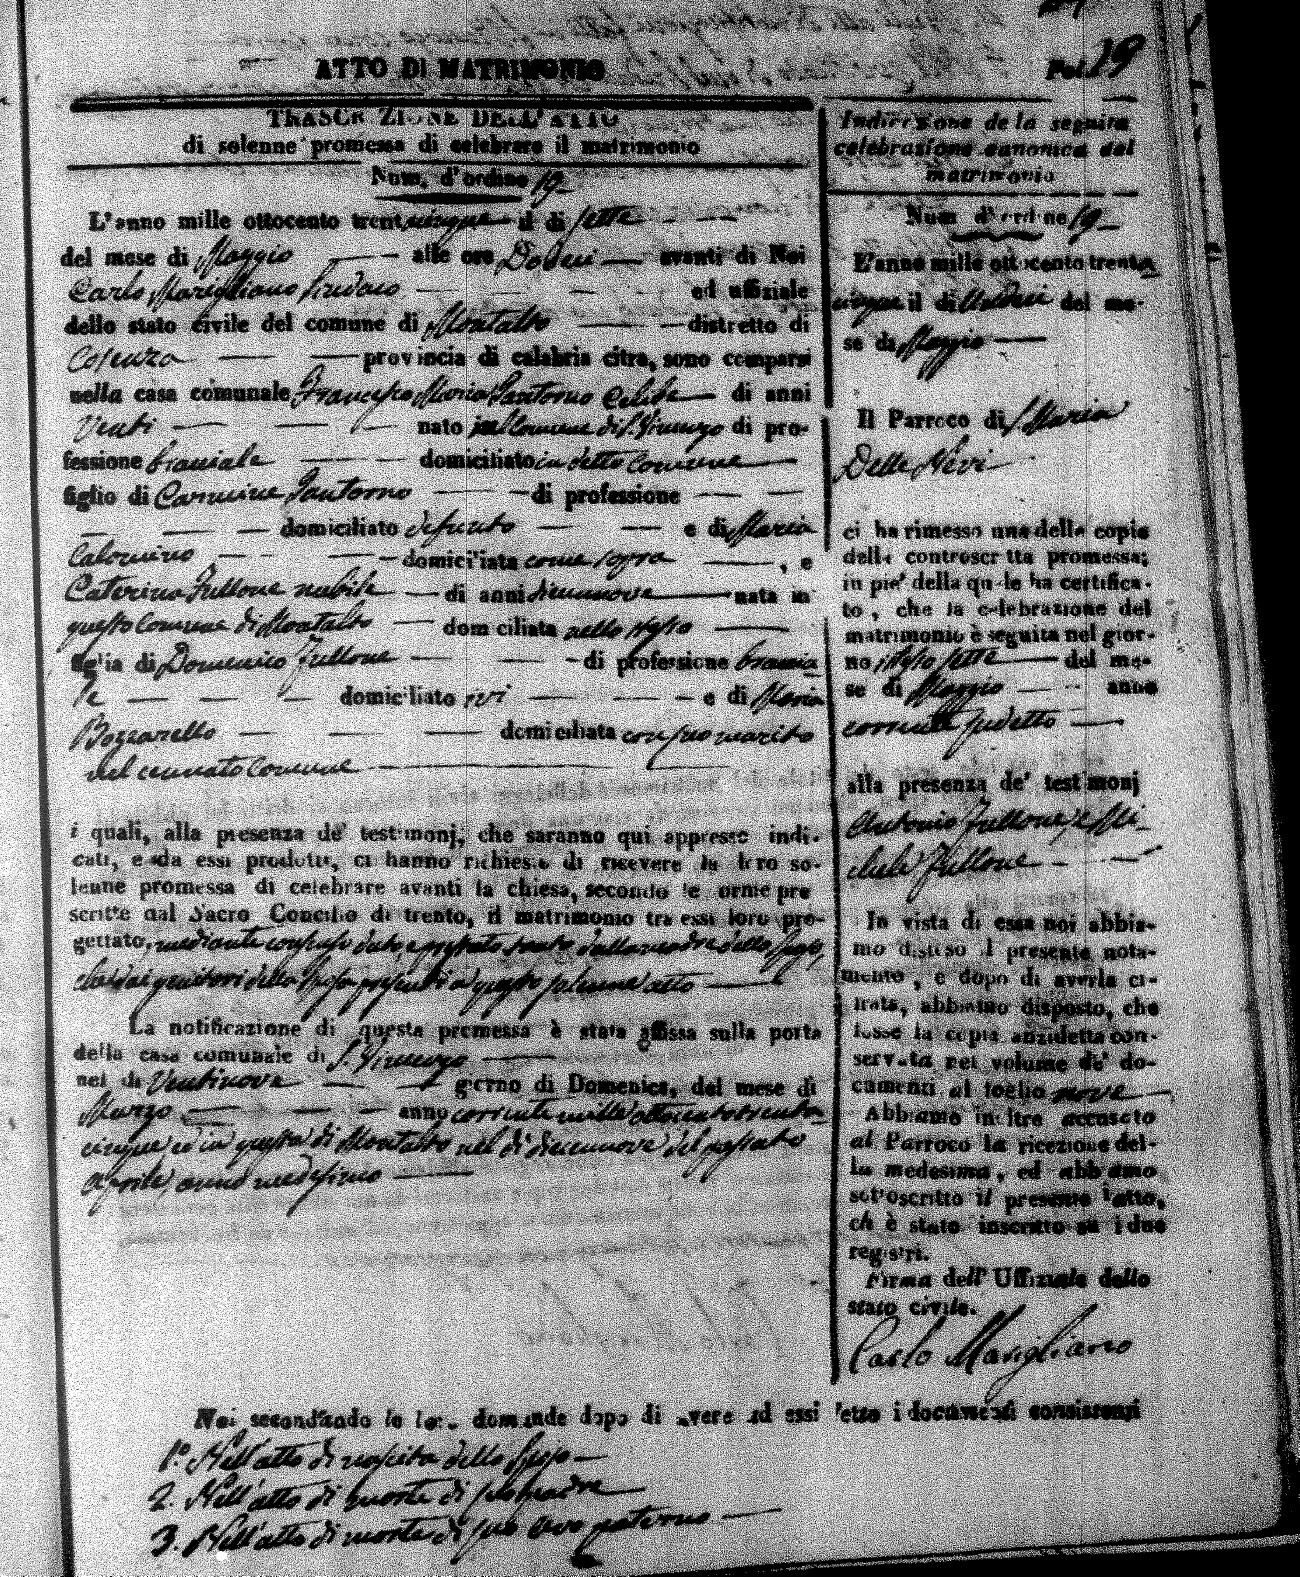 ATTO DI MATRIMONIO
Pol. 19
TRASCRIZIONE DELL'ATTO
di solenne promessa di celebrare il matrimonio
Num. d'ordine 19
L'anno mille ottocento trentacinque il di sette
del mese di Maggio alle ore Dodeci avanti di Noi
Carlo Marigliano Sindaco ed uffiziale
dello stato civile del comune di Montalto distretto di
Cosenza provincia di calabria citra, sono comparsi
nella casa comunale Francesco Maria Santorno Celibe di anni
Venti nato nel Comune di S. Vincenzo di pro-
fessione bracciale domiciliato in detto Comune
figlio di Carmine Santorno di professione
domiciliato defunto e di Maria
Calomino domiciliata come sopra , e
Caterina Fullone nubile di anni diecinnove nata in
questo Comune di Montalto domiciliata nello stesso
figlia di Domenico Fullone di professione braccia
le domiciliato ivi e di Maria
Bozzarello domiciliata con suo marito
nel cennato Comune
i quali, alla presenza de' testimonj, che saranno qui appresso indi-
cati, e da essi prodotti, ci hanno richiesto di ricevere la loro so-
lenne promessa di celebrare avanti la chiesa, secondo le forme pre
scritte dal Sacro Concilio di trento, il matrimonio tra essi loro pro-
gettato, mediante consenso dato, e prestato tanto dalla madre dello sposo,
che dai genitori della Sposa presenti a questo solenne atto
La notificazione di questa promessa è stata affissa sulla porta
della casa comunale di S. Vincenzo
nel dì Ventinove giorno di Domenica, del mese di
Marzo anno corrente mille ottocento trenta
cinque ed in questa di Montalto nel di diecinnove del passato
Aprile, anno medesimo
Indicazione della seguita
celebrazione canonica del
matrimonio
Num d'ordine 19
L'anno mille ottocento trenta
cinque il di Undeci del me-
se di Maggio
Il Parroco di S. Maria
Delle Nevi
ci ha rimesso una delle copie
della controscritta promessa;
in pie' della quale ha certifica-
to, che la celebrazione del
matrimonio è seguita nel gior-
no istesso sette del me-
se di Maggio anno
corrente sudetto
alla presenza de' testimonj
Antonio Fullone, e Mi-
chele Fullone
In vista di essa noi abbia-
mo disteso il presente nota-
mento, e dopo di averla ci-
frata, abbiamo disposto, che
fosse la copia anzidetta con-
servata nel volume de' do-
cumenti al foglio nove
Abbiamo inoltre accusato
al Parroco la ricezione del-
la medesima, ed abbiamo
sottoscritto il presente atto,
ch è stato inscritto su i due
registri.
Firma dell' Uffiziale dello
stato civile.
Carlo Marigliano
Noi secondando le loro domande dopo di avere ad essi letto i documenti consistenti
1.° Nell'atto di nascita dello Sposo
2. Nell'atto di morte di suo padre
3. Nell'atto di morte di suo avo paterno